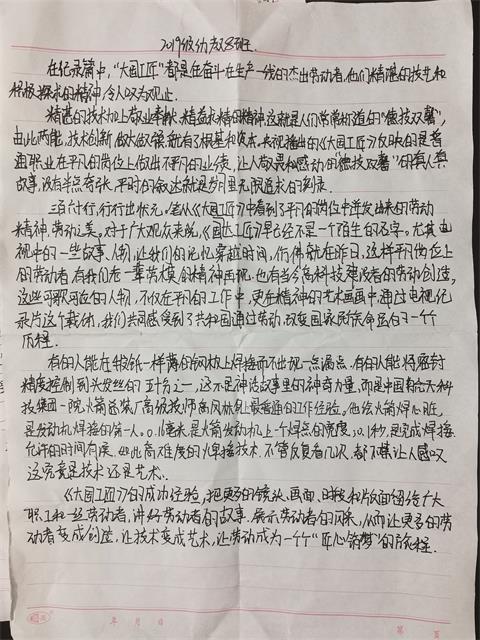 2019级幼教8班.
在纪录篇中，“大国工匠”都是在奋斗在生产一线的杰出劳动者，他们精湛的技艺和
积极探求的精神，令人叹为观止.
精湛的技术加上敬业奉献、精益求精的精神，这就是人们常常称道的“德技双馨”，
由此两能，技术创新、做大做强就有了根基和资本。央视播出的《大国工匠》反映的是普
通职业在平凡的岗位上做出不平凡的业绩，让人敬畏和感动的“德技双馨”的真人真
故事，没有半点夸张，平时的叙述就是岁月里无限追求的刻录.
三百六行，行行出状元。笔从《大国工匠》中看到了平凡的岗位中迸发出来的劳动
精神，劳动之美。对于广大观众来说，《大国工匠》早已经不是一个陌生的名字，尤其电
视中的一些故事、人物，让我们的记忆穿越时间，仿佛就在昨日，这样平凡岗位上
的劳动者，有我们老一辈劳模的精神再现，也有当今高科技建设者的劳动创造，
这些可歌可泣的人物，不仅在平凡的工作中，更在精神的艺术画面中通过电视纪
录片这个载体，我们共同感受到了共和国通过劳动，改变国家民族命运的一个个
历程.
有的人能在牛皮纸一样薄的钢板上焊接而不出现一点漏点，有的人能将密封
精度控制到头发丝的五十分之一，这不是神话故事里的神奇力量，而是中国航天科
技集团一院火箭总装厂高级技师高凤林身上最普通的工作经验。他给火箭焊心脏，
是发动机焊接的第一人。0.16毫米，是火箭发动机上一个焊点的宽度，0.1秒，是完成焊接
允许的时间有误。如此高难度的焊接技术，不管反复看几次，都不禁让人感叹
这究竟是技术还是艺术.
《大国工匠》的成功经验，把更多的镜头、画面、时段和版面留给广大
职工和一线劳动者，讲好劳动者的故事，展示劳动者的风采，从而让更多的劳
动者变成创造，让技术变成艺术，让劳动成为一个个“匠心筑梦”的历程.
年 月 日
第 页